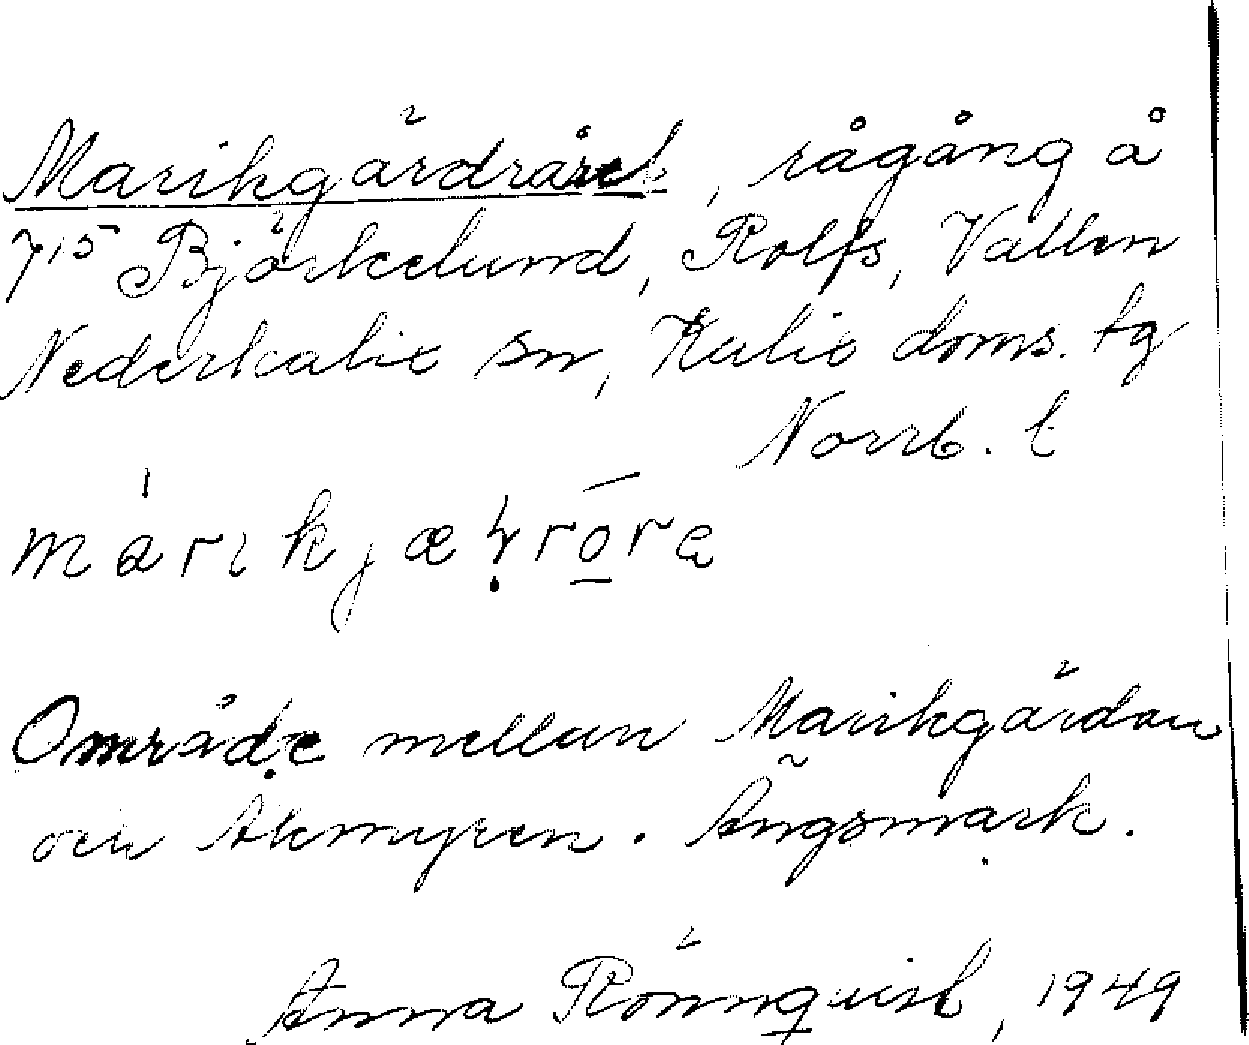 Marikgärdrået, rågång å
715 Björkelund, Rolfs, Vallen
Nederkalix sn, Kalix doms. tg
Norrb. l
Område mellan Marikgärdan
och Åkmyren. Ängsmark.
Anna Rönnqvist, 1949